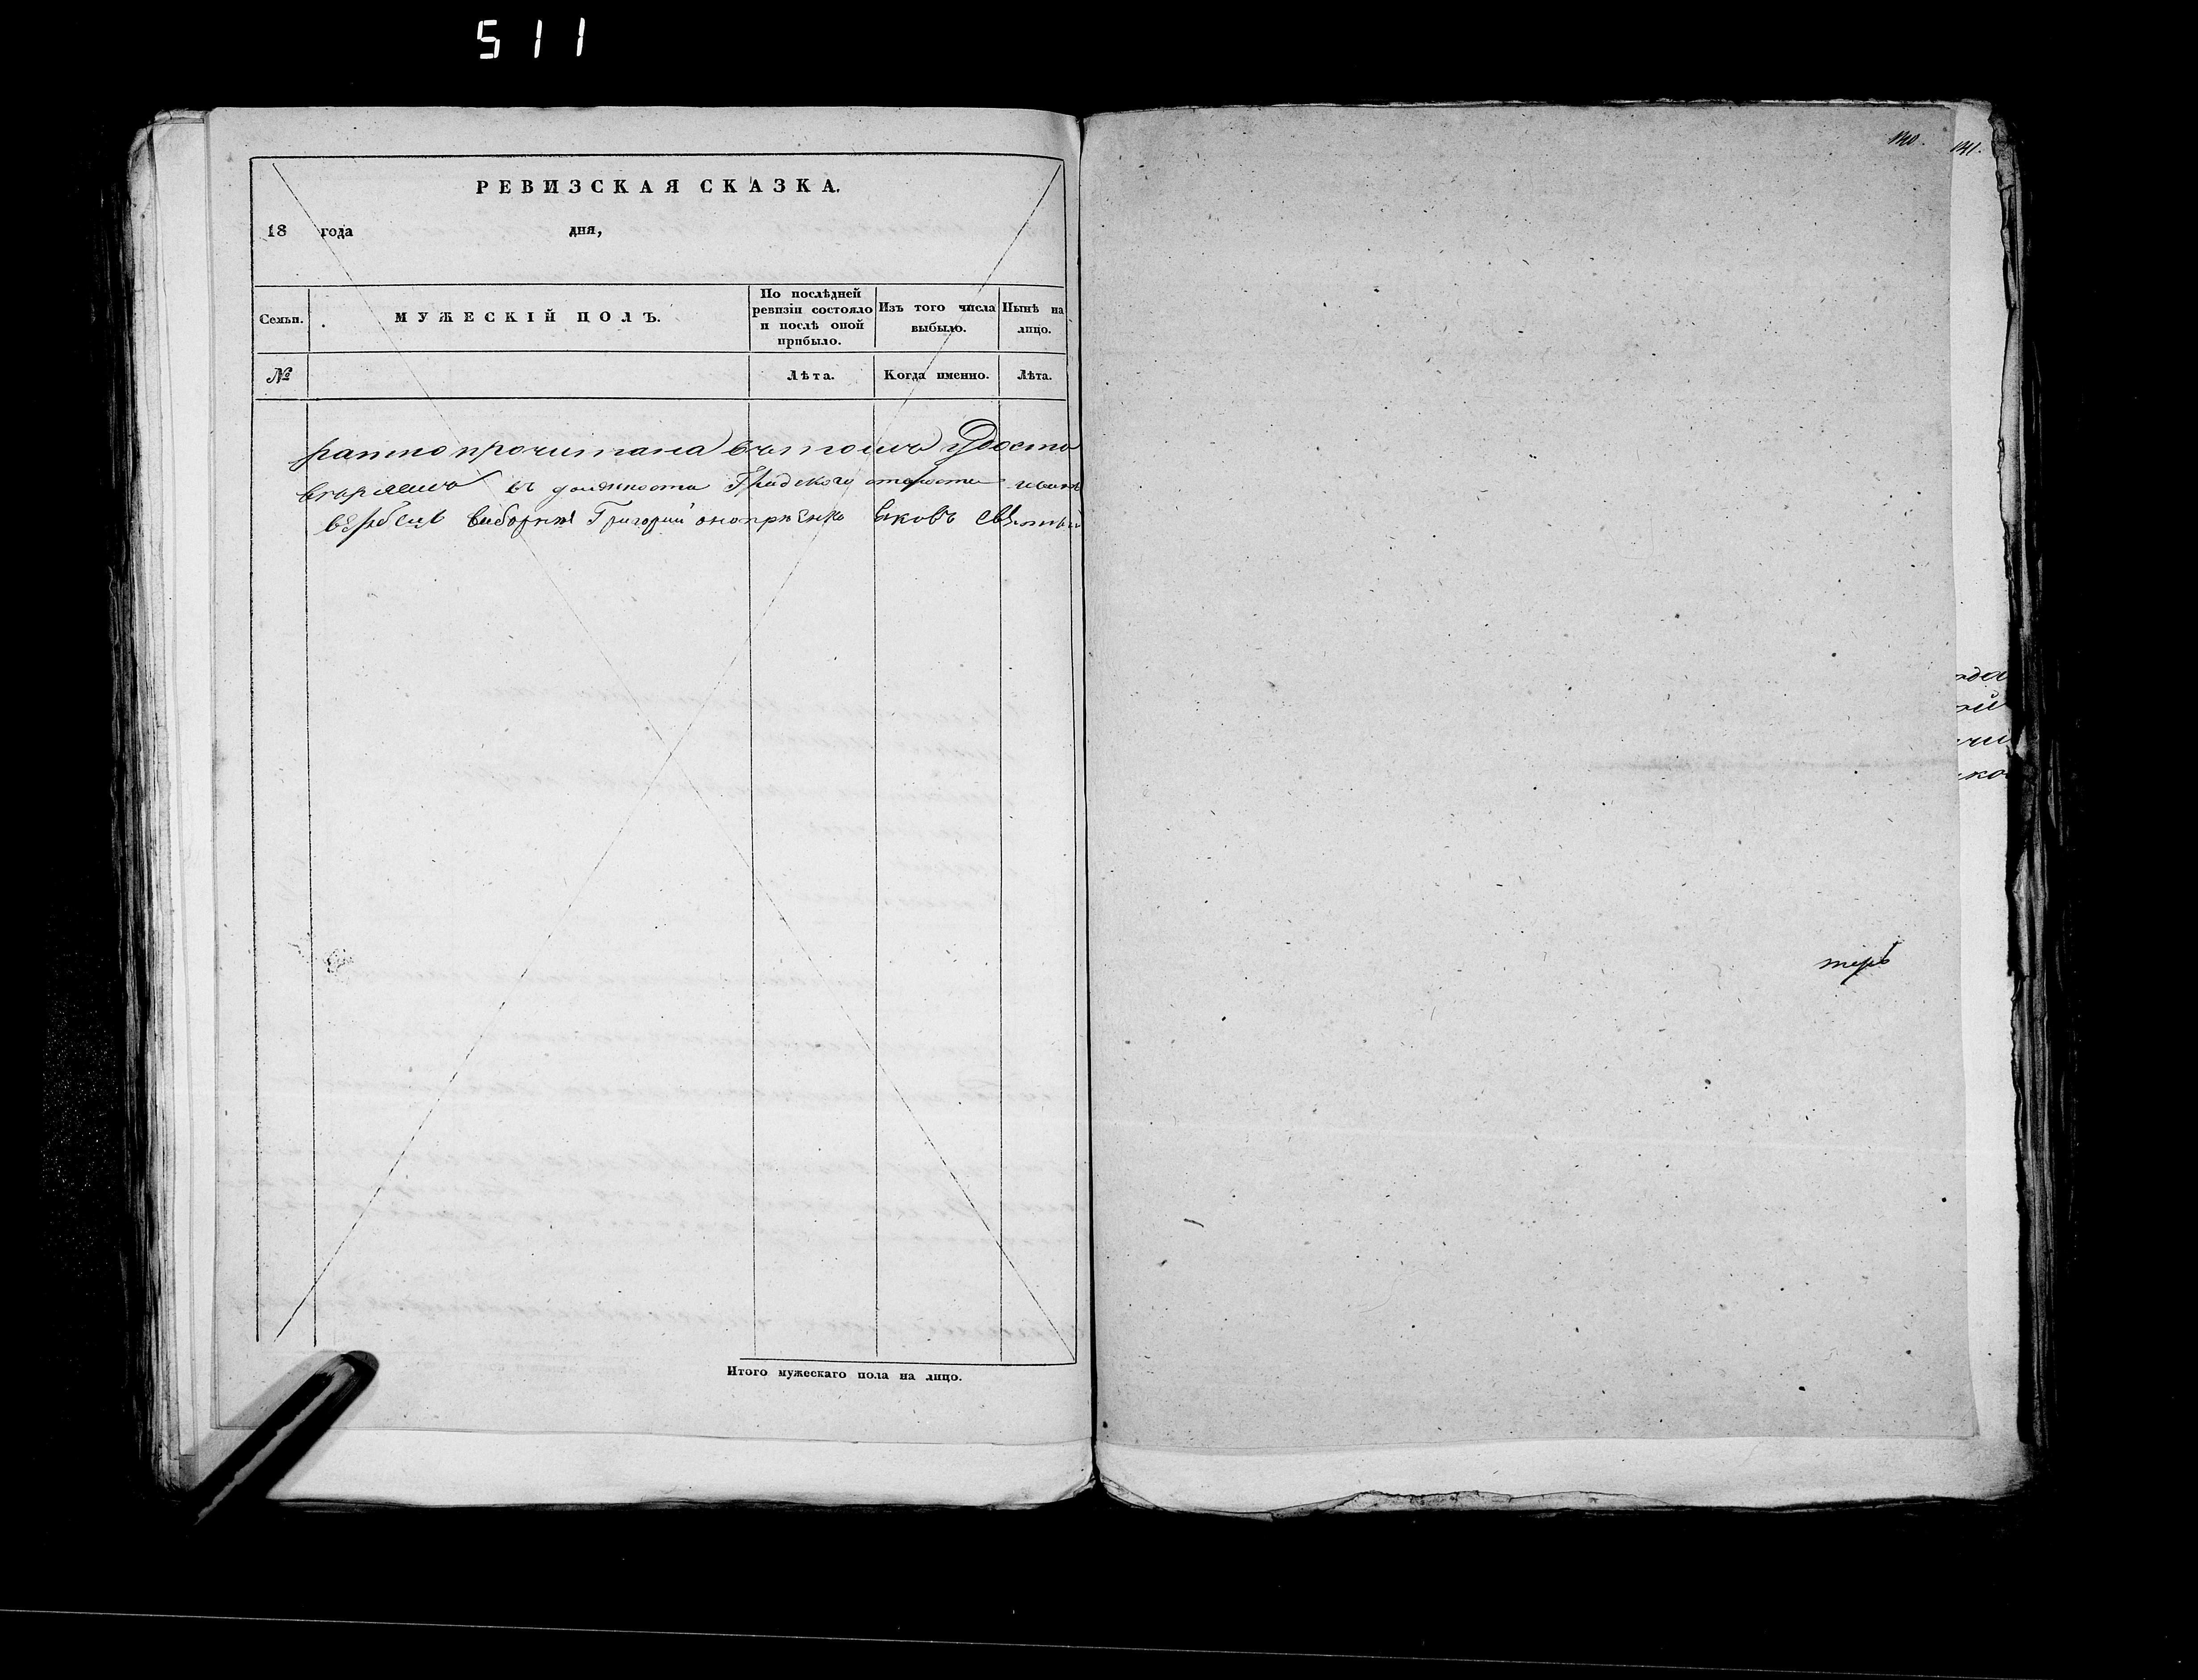 511
РЕВИЗСКАЯ СКАЗКА.
18 года дня,
Семьи.
МУЖЕСКІЙ ПОЛЪ.
По послѣдней
ревизіи состояло
и послѣ оной
прибыло.
Изъ того числа
выбыло.
Нынѣ на
лицо.
№
Лѣта.
Когда именно.
Лѣта.
ратно прочитана въ томъ удосто
веряемъ въ должности Градского старосты иванъ
вербецъ виборные Григорий оноприенко Яковъ
Итого мужескаго пола на лицо.
140.
141.
ода
ой
чи
ко
теръ